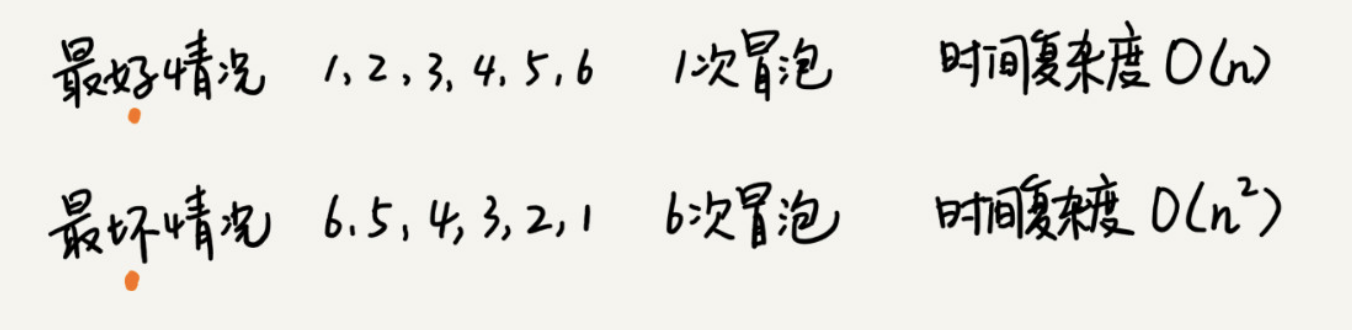 最好情况 1,2,3,4,5,6 1次冒泡 时间复杂度 O(n)
最坏情况 6.5,4,3,2,1 6次冒泡 时间复杂度 O(n²)